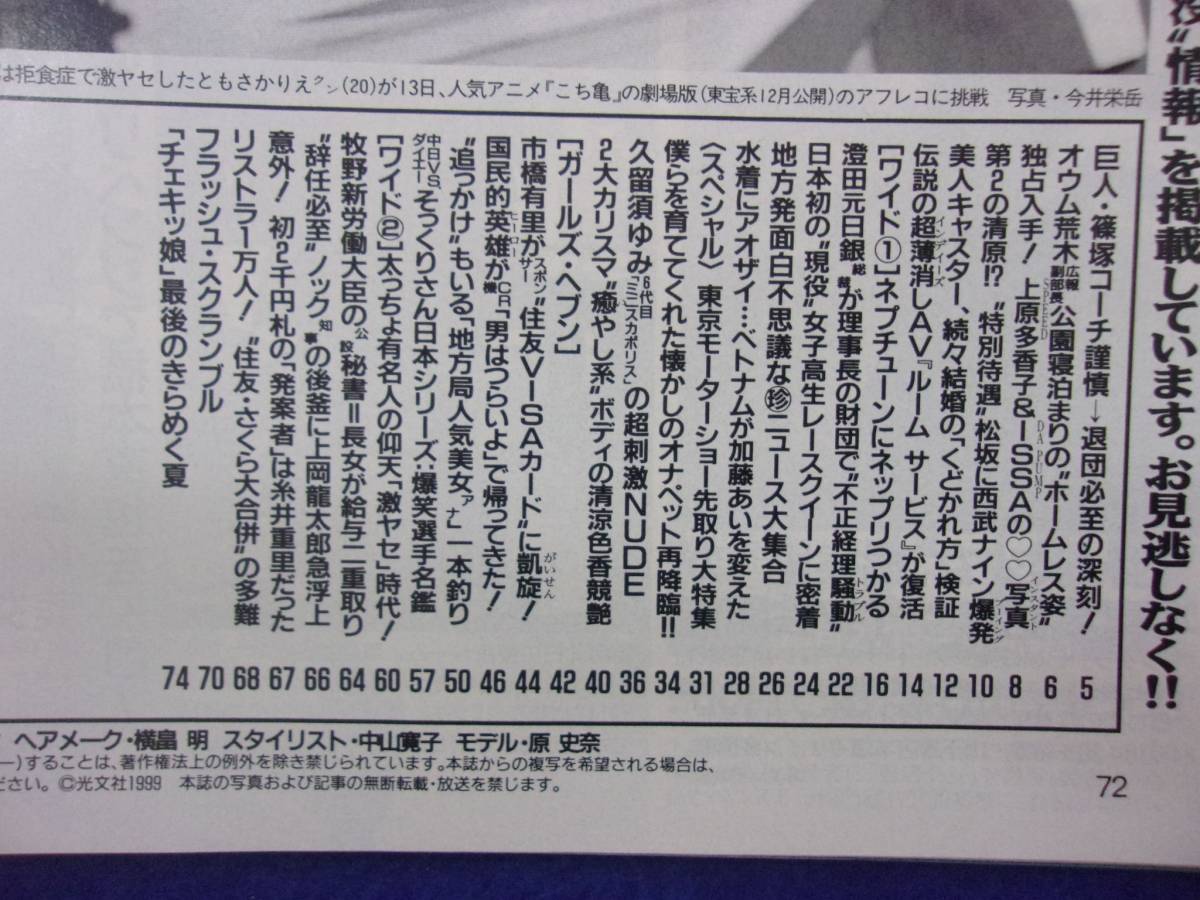 は拒食症で激ヤセしたともさかりえクン(20)が13日、人気アニメ『こち亀』の劇場版(東宝系12月公開)のアフレコに挑戦　写真・今井栄岳
“情報”を掲載しています。お見逃しなく!!
巨人・篠塚コーチ謹慎→退団必至の深刻! 5
オウム荒木広報副部長公園寝泊まりの“ホームレス姿” 6
独占入手! 上原多香子SPEED&ISSA DA PUMPの♡♡写真インスタント 8
第2の清原!? “特別待遇”松坂に西武ナイン爆発ブーイング 10
美人キャスター、続々結婚の「くどかれ方」検証 12
伝説の超薄消しインディーズAV『ルーム サービス』が復活 14
[ワイド①]ネプチューンにネップリつかる 16
澄田元日銀総裁が理事長の財団で“不正経理騒動トラブル” 22
日本初の“現役”女子高生レースクイーンに密着 24
地方発面白不思議な㊟ニュース大集合 26
水着にアオザイ…ベトナムが加藤あいを変えた 28
〈スペシャル〉東京モーターショー先取り大特集 31
僕らを育ててくれた懐かしのオナペット再降臨!! 34
久留須ゆみ6代目「ミニスカポリス」の超刺激NUDE 36
2大カリスマ“癒やし系”ボディの清涼色香競艶 40
[ガールズ・ヘブン] 42
市橋有里がスポンサー“住友VISAカード”に凱旋がいせん! 44
国民的英雄ヒーローがCR機「男はつらいよ」で帰ってきた! 46
“追っかけ”もいる「地方局人気美女アナ」一本釣り 50
中日VS.ダイエーそっくりさん日本シリーズ・爆笑選手名鑑 57
[ワイド②]太っちょ有名人の仰天「激ヤセ」時代! 60
牧野新労働大臣の公設秘書=長女が給与二重取り 64
“辞任必至”ノック知事の後釜に上岡龍太郎急浮上 66
意外! 初2千円札の「発案者」は糸井重里だった 67
リストラ一万人! “住友・さくら大合併”の多難 68
フラッシュ・スクランブル 70
「チェキッ娘」最後のきらめく夏 74
ヘアメーク・横畠 明　スタイリスト・中山寛子　モデル・原 史奈
ー)することは、著作権法上の例外を除き禁じられています。本誌からの複写を希望される場合は、
ださい。©光文社1999　本誌の写真および記事の無断転載・放送を禁じます。
72